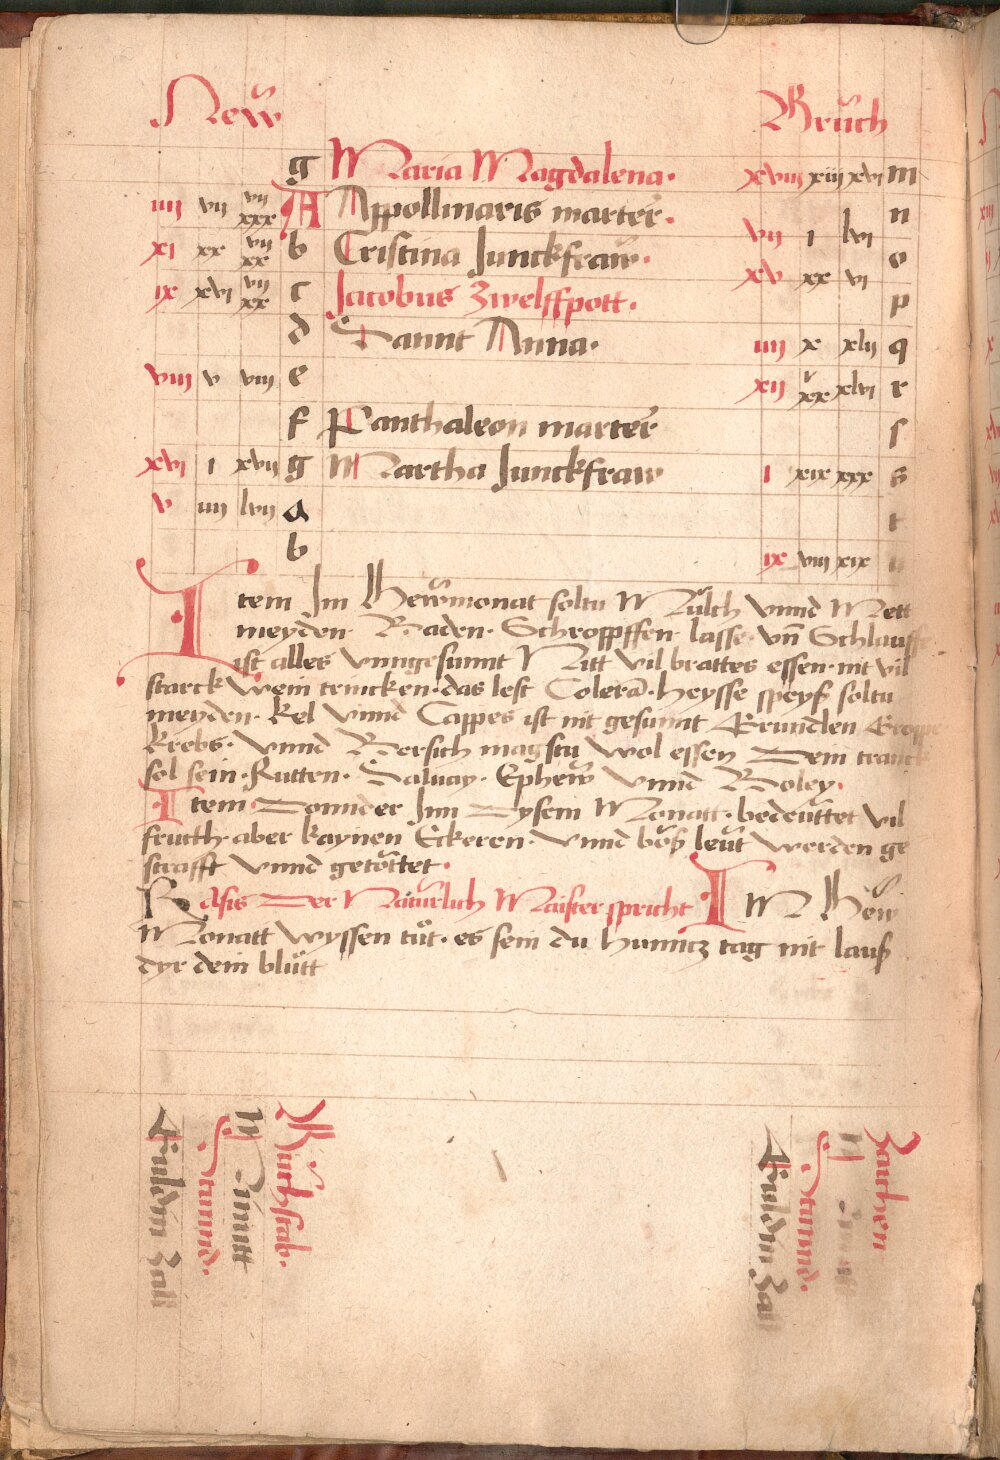 New Brüch
g Maria Magdalena. xviii xiii xvi m
iiii vii vii xxx A Appollinaris marter. n
vii i lvi
xi xx vii xx b Cristina Junckfraw. o
xv xx vi
ix xvi vii xx c Jacobus Zwelffpott. p
d Sannt Anna. iiii x xlii q
viii v viii e xii v xx xlvi r
f Panthaleon marter ſ
xvi i xvii g Martha Junckfraw i xix xxx s
v iiii lvii a t
b ix viii xix u
Item Im Hewmonat soltu Mülch vnnd Mett
meyden. Baden. Schroppffen lasse. vn̄ Schlauff
ist alles vnngesunnt Nitt vil brattes essen. nit vil
starck wein trincken. das lest Colera. heysse speyß soltu
meyden. Kel vnnd Cappes ist nit gesunnt Grundlen
Krebs. vnnd Bersich magstu wol essen Dein tranck
sol sein. Rutten. Saluay. Ephew vnnd Boley.
Item Donnder Inn Dysem Monatt. bedeüttet vil
fructh. aber kaynen Eckeren. vnnd böß leüt werden ge
strafft vnnd getöttet.
Rasis Der Natürlich Maister spricht IM Hew
Monatt wyssen tüt. es sein du hunntz tag nit lauß
dyr dein blütt
Guldin Zall
Stunnd.
Minutt
Büchstab.
Guldin Zall
Stunnd.
Zaichen